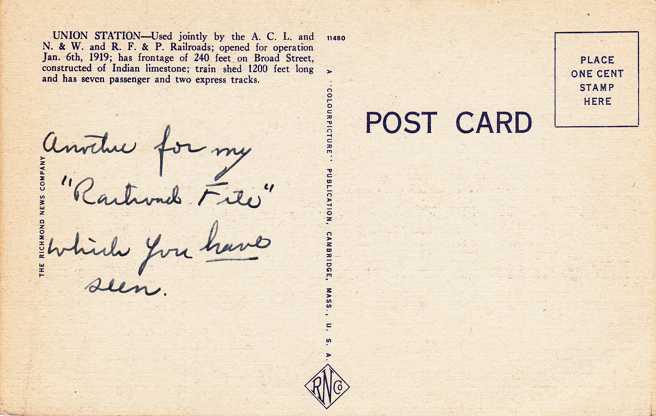 UNION STATION—Used jointly by the A. C. L. and
N. & W. and R. F. & P. Railroads; opened for operation
Jan. 6th, 1919; has frontage of 240 feet on Broad Street,
constructed of Indian limestone; train shed 1200 feet long
and has seven passenger and two express tracks.
11480
PLACE
ONE CENT
STAMP
HERE
POST CARD
Another for my
"Railroad File"
which you have
seen.
THE RICHMOND NEWS COMPANY
A "COLOURPICTURE" PUBLICATION, CAMBRIDGE, MASS., U. S. A.
RNCo